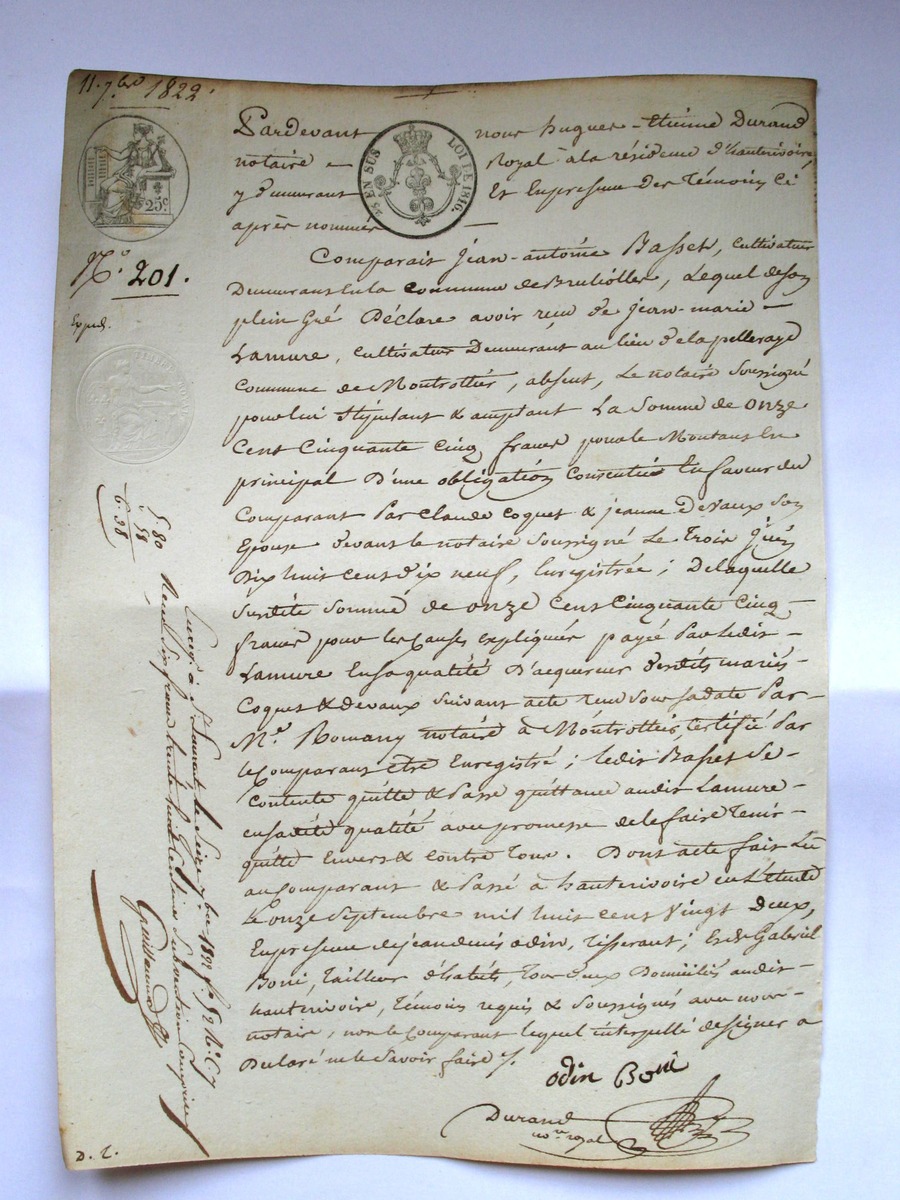 11. 7bre 1822.
Pardevant nous hugues-Etienne Durand
notaire Royal à la résidence d'hauterivoire,
y demeurant Et En presence des Témoins Ci
après nommés
25 EN SUS
LOI DE 1816.
25c
N.° 201.
Exped.
Comparait Jean-antoine Basset, cultivateur
Demeurant En la commune de Brullioles, Lequel de son
plein Gré Déclare avoir reçu de jean-marie
Lamure, cultivateur Demeurant au lieu de la pelleraye
commune de Montrottier, absent, Le notaire soussigné
pour lui stipulant & acceptant La Somme de onze
Cent Cinquante Cinq francs pour le Montant En
principal D'une obligation Consentie En faveur du
Comparant Par Claude Coquet & jeanne Devaux son
Epouse devant le notaire soussigné Le Trois
Dix huit cent dix neuf, Enregistrée ; De laquelle
Susdite Somme de onze Cent Cinquante Cinq
francs pour les Causes expliquées payée Par Ledit
Lamure En sa qualité D'acquereur desdits mariés
Coquet & devaux Suivant acte reçu sous sa date Par
Me. Romany notaire à Montrottier, certifié Par
le Comparant être Enregistré ; ledit Basset Se
Contente quitte & Passe quittance audit Lamure
en sadite qualité avec promesse de le faire Tenir
quitte Envers & contre Tous. Dont acte fait Lu
au Comparant & Passé à hauterivoire En L'étude
Le onze Septembre mil huit cent vingt deux,
En presence de jean denis odin, Tisserant, Et de Gabriel
Boni, Tailleur d'habits, Tous deux Domiciliés audit
hauterivoire, Témoins requis & Soussignés avec nous
notaire, non le Comparant lequel interpellé de signer a
Déclaré ne le Savoir faire
odin Boni
Durand
nore royal
5. 80
. 58
6. 38
Enregé à St Laurent le Seize 7bre 1822 fo 82
Reçu Six francs trente huit Centimes Subvention Comprise
D. T.